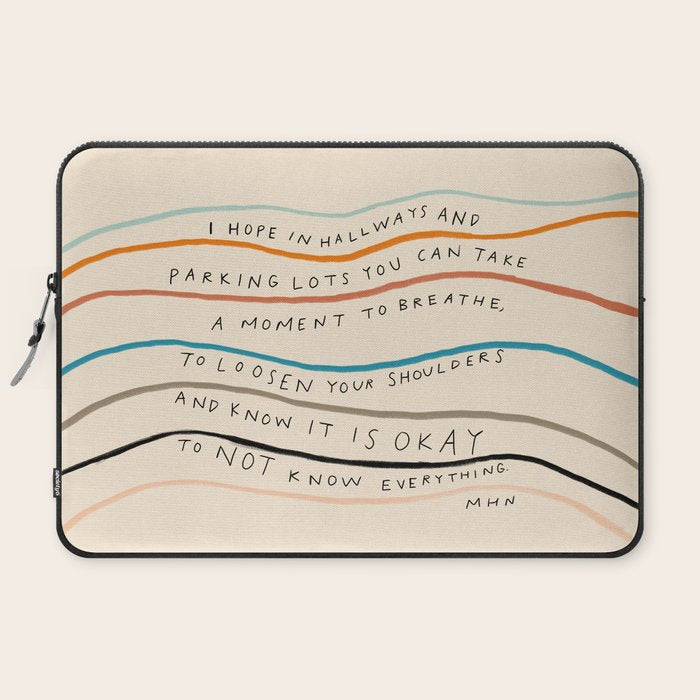 I HOPE IN HALLWAYS AND
PARKING LOTS YOU CAN TAKE
A MOMENT TO BREATHE,
TO LOOSEN YOUR SHOULDERS
AND KNOW IT IS OKAY
TO NOT KNOW EVERYTHING.
MHN
society6